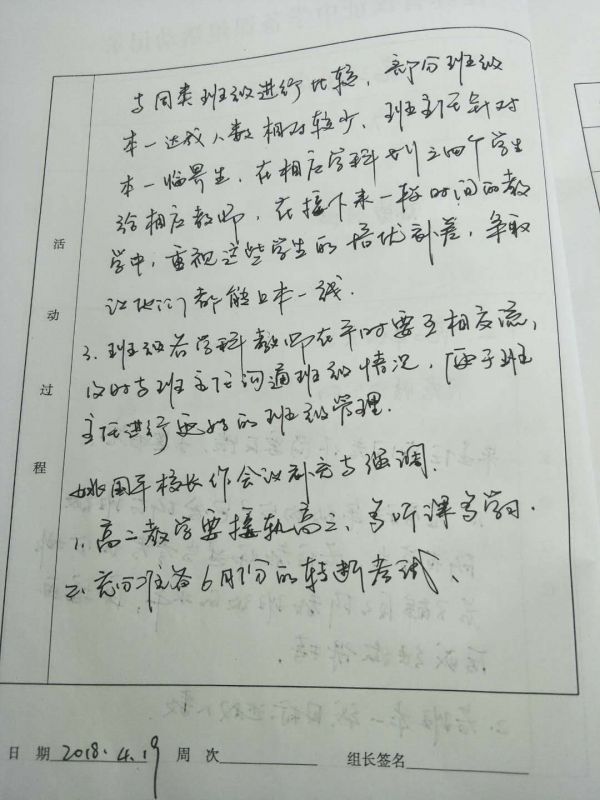 与同类班级进行比较，部分班级
本一达线人数相对较少，班主任针对
本一临界生，在相应学科划三四个学生
给相应教师，在接下来一段时间的教
学中，重视这些学生的培优补差，争取
让他们都能上本一线.
3. 班级各学科教师在平时要互相交流，
及时与班主任沟通班级情况，便于班
主任进行更好的班级管理.
姚国平校长作会议补充与强调.
1. 高二教学要接轨高三、多听课多学习.
2. 充分准备6月份的转断考试、
活动过程
日 期 2018.4.19 周 次 组长签名